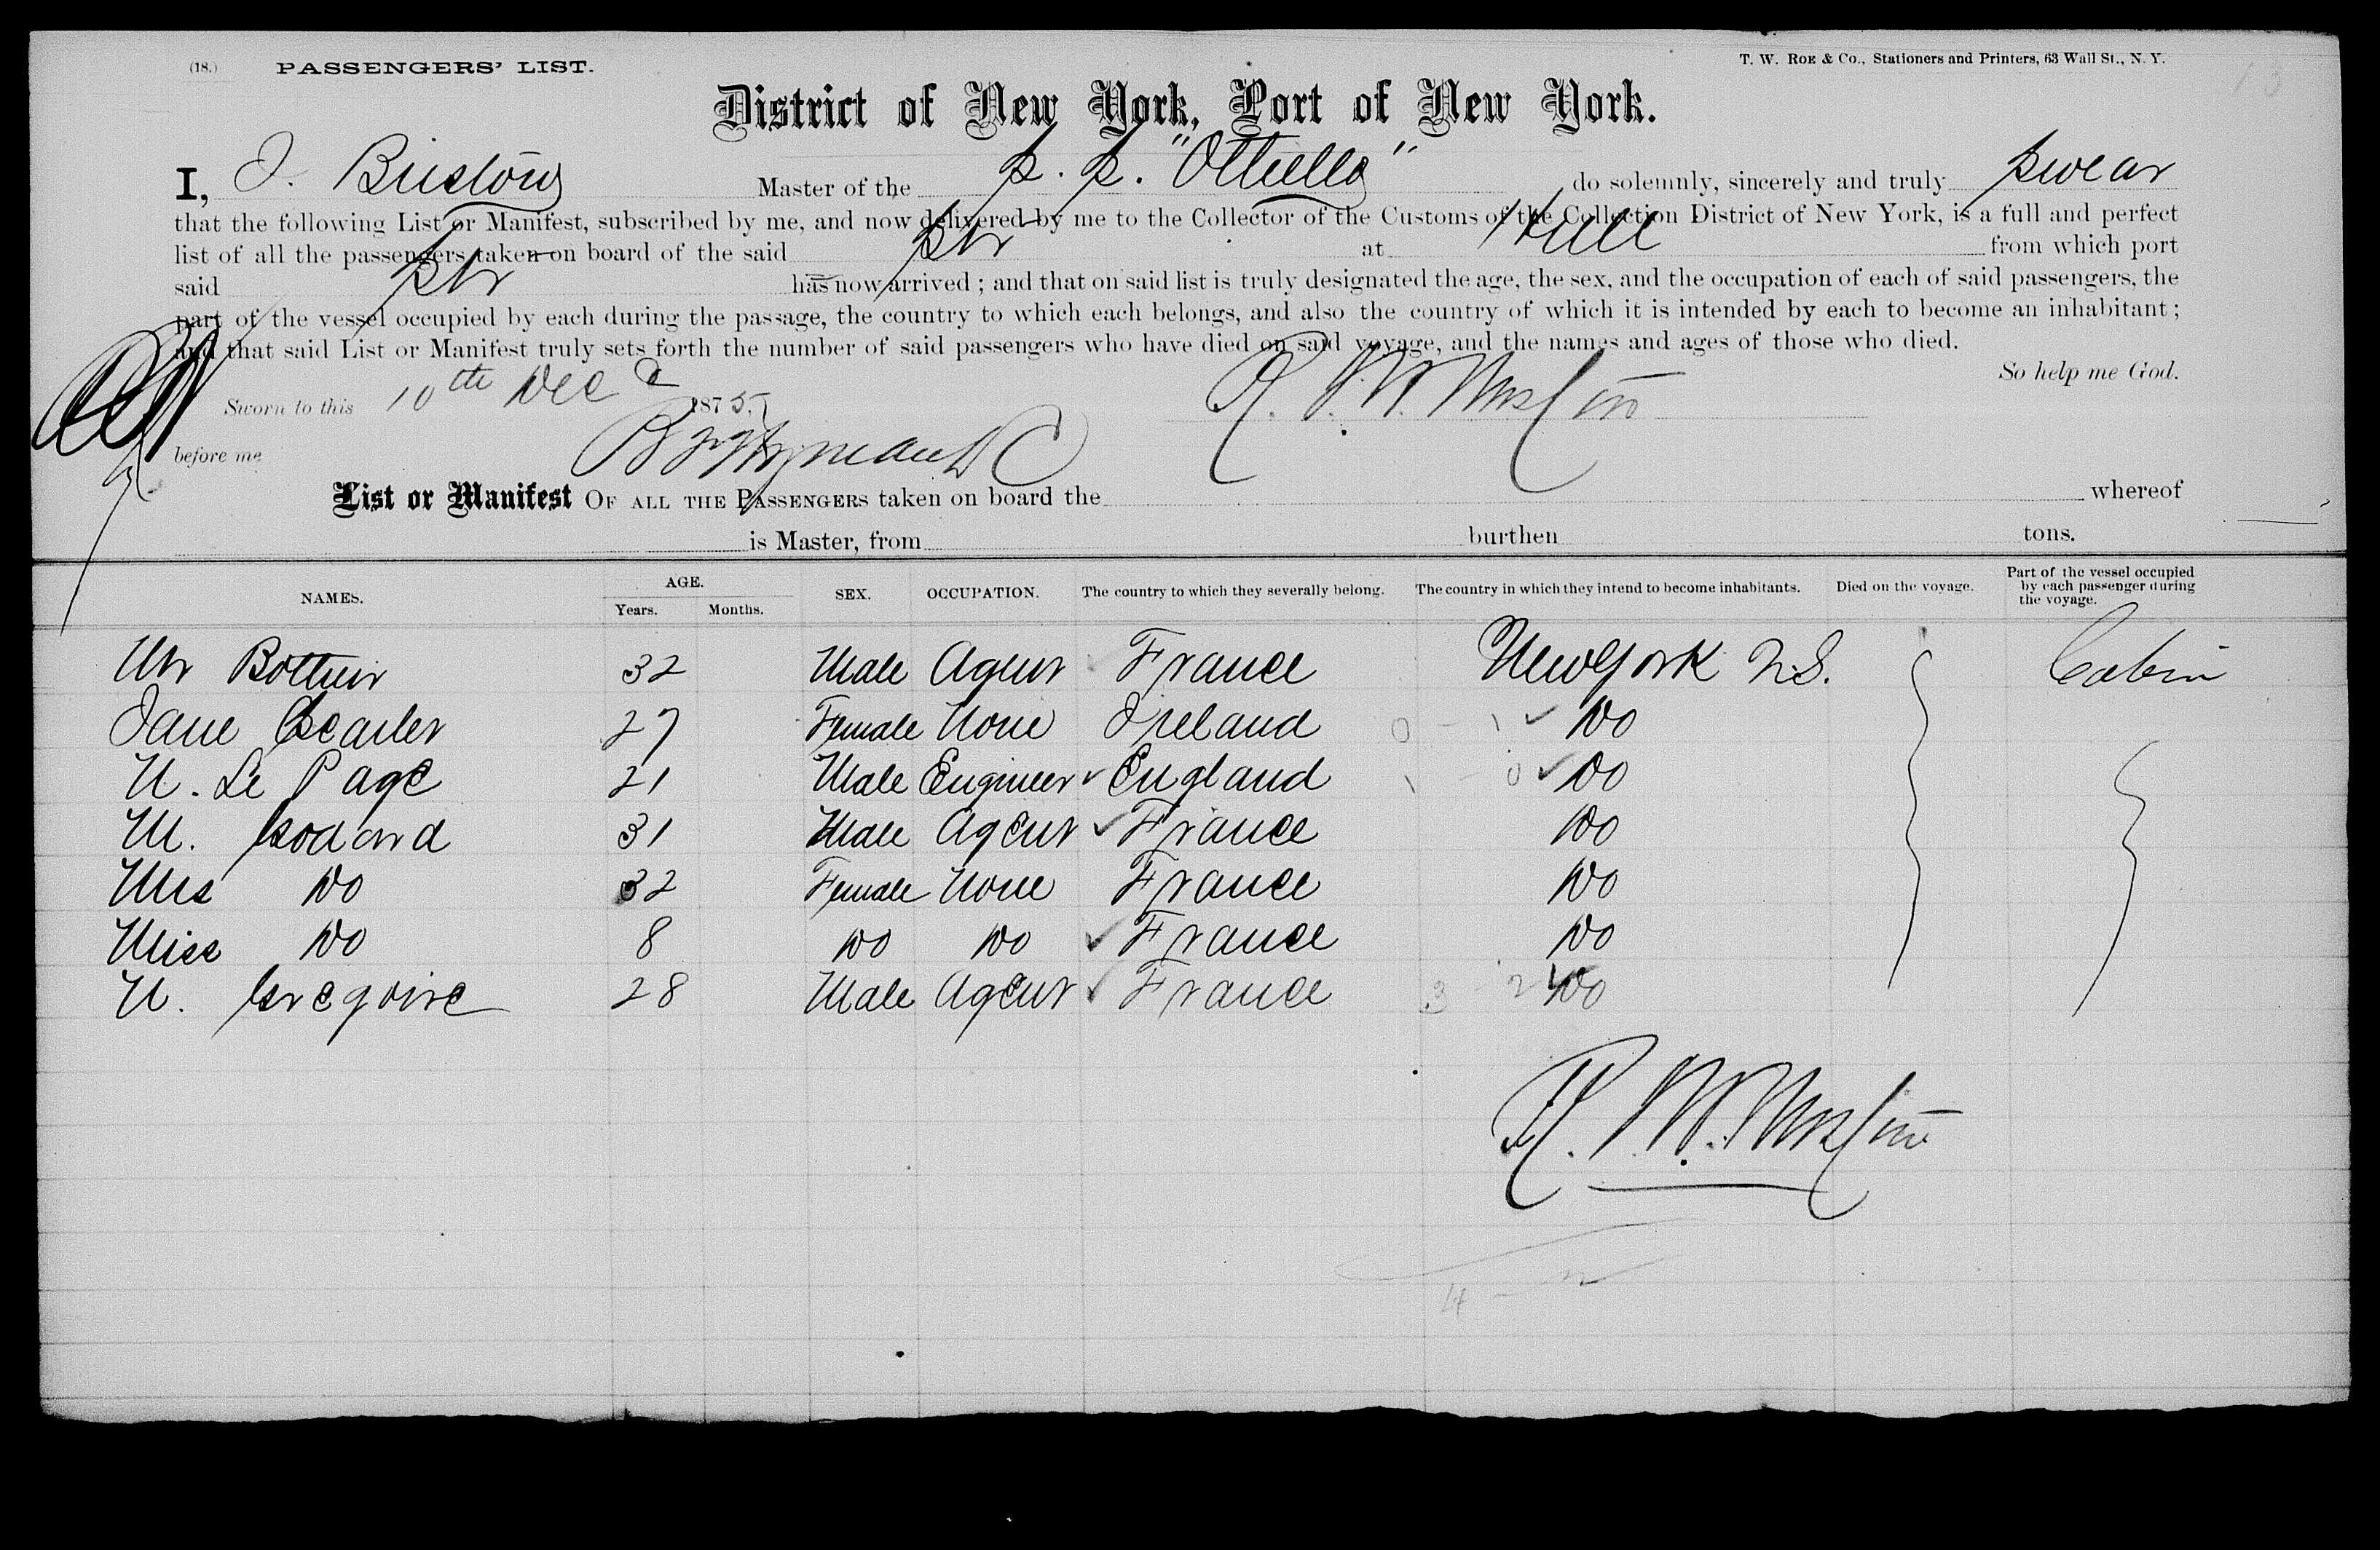 (18.) PASSENGERS' LIST.
T. W. ROE & Co., Stationers and Printers, 63 Wall St., N. Y.
District of New York, Port of New York.
I, J. Bristow Master of the S. S. "Othello" do solemnly, sincerely and truly swear
that the following List or Manifest, subscribed by me, and now delivered by me to the Collector of the Customs of the Collection District of New York, is a full and perfect
list of all the passengers taken on board of the said Str at Hull from which port
said Str has now arrived ; and that on said list is truly designated the age, the sex, and the occupation of each of said passengers, the
part of the vessel occupied by each during the passage, the country to which each belongs, and also the country of which it is intended by each to become an inhabitant ;
and that said List or Manifest truly sets forth the number of said passengers who have died on said voyage, and the names and ages of those who died.
So help me God.
Sworn to this 10th Dec 1875
before me
List or Manifest OF ALL THE PASSENGERS taken on board the whereof
is Master, from burthen tons.
NAMES. AGE. Years. Months. SEX. OCCUPATION. The country to which they severally belong. The country in which they intend to become inhabitants. Died on the voyage. Part of the vessel occupied by each passenger during the voyage.
Mr 32 Male Agent France New York U.S. Cabin
Jane 27 Female None Ireland 0 - 1 Do
N. Le Page 21 Male Engineer England 1 - 0 Do
M. Godard 31 Male Agent France Do
Mrs Do 32 Female None France Do
Miss Do 8 Do Do France Do
N. Gregoire 28 Male Agent France 3 - 2 Do
4